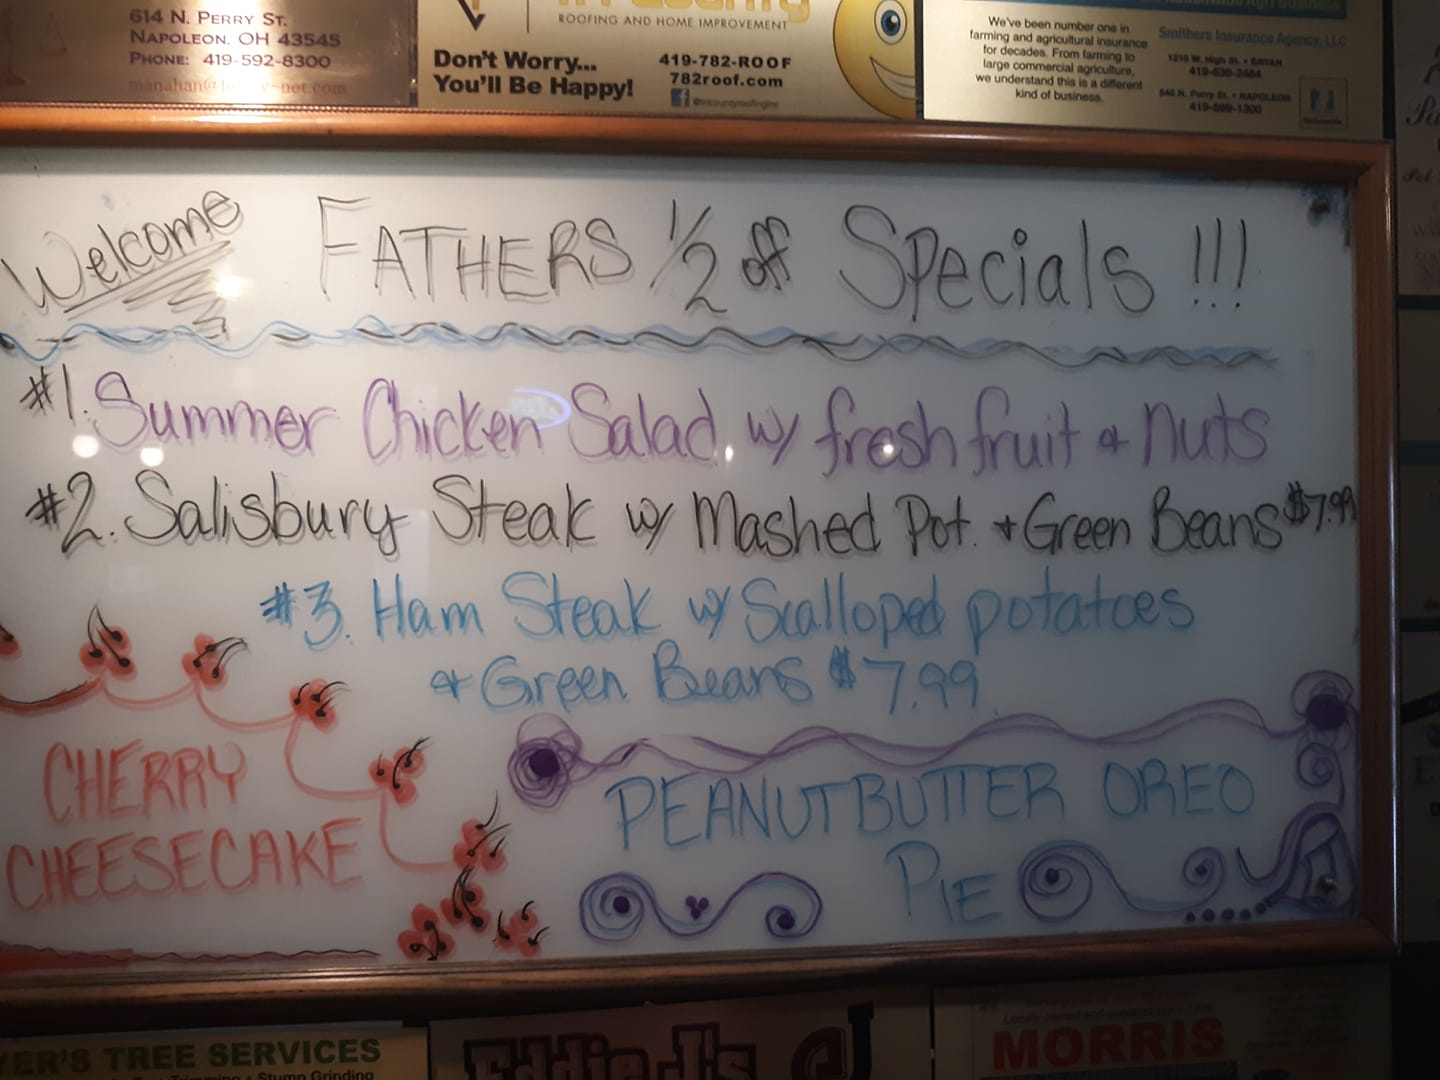 614 N. PERRY ST.
NAPOLEON, OH 43545
PHONE: 419-592-8300
ROOFING AND HOME IMPROVEMENT
Don't Worry...
You'll Be Happy!
419-782-ROOF
782roof.com
@tricountyroofinginc
We've been number one in
farming and agricultural insurance
for decades. From farming to
large commercial agriculture,
we understand this is a different
kind of business.
Smithers Insurance Agency, LLC
1216 W. High St. • BRYAN
419-636-2484
840 N. Perry St. • NAPOLEON
419-599-1300
Welcome
FATHERS 1/2 off Specials !!!
#1. Summer Chicken Salad w/ fresh fruit & nuts
#2. Salisbury Steak w/ Mashed Pot. & Green Beans $7.99
#3. Ham Steak w/ Scalloped potatoes
& Green Beans $7.99
CHERRY
CHEESECAKE
PEANUTBUTTER OREO
PIE
YER'S TREE SERVICES
Stump Grinding
MORRIS